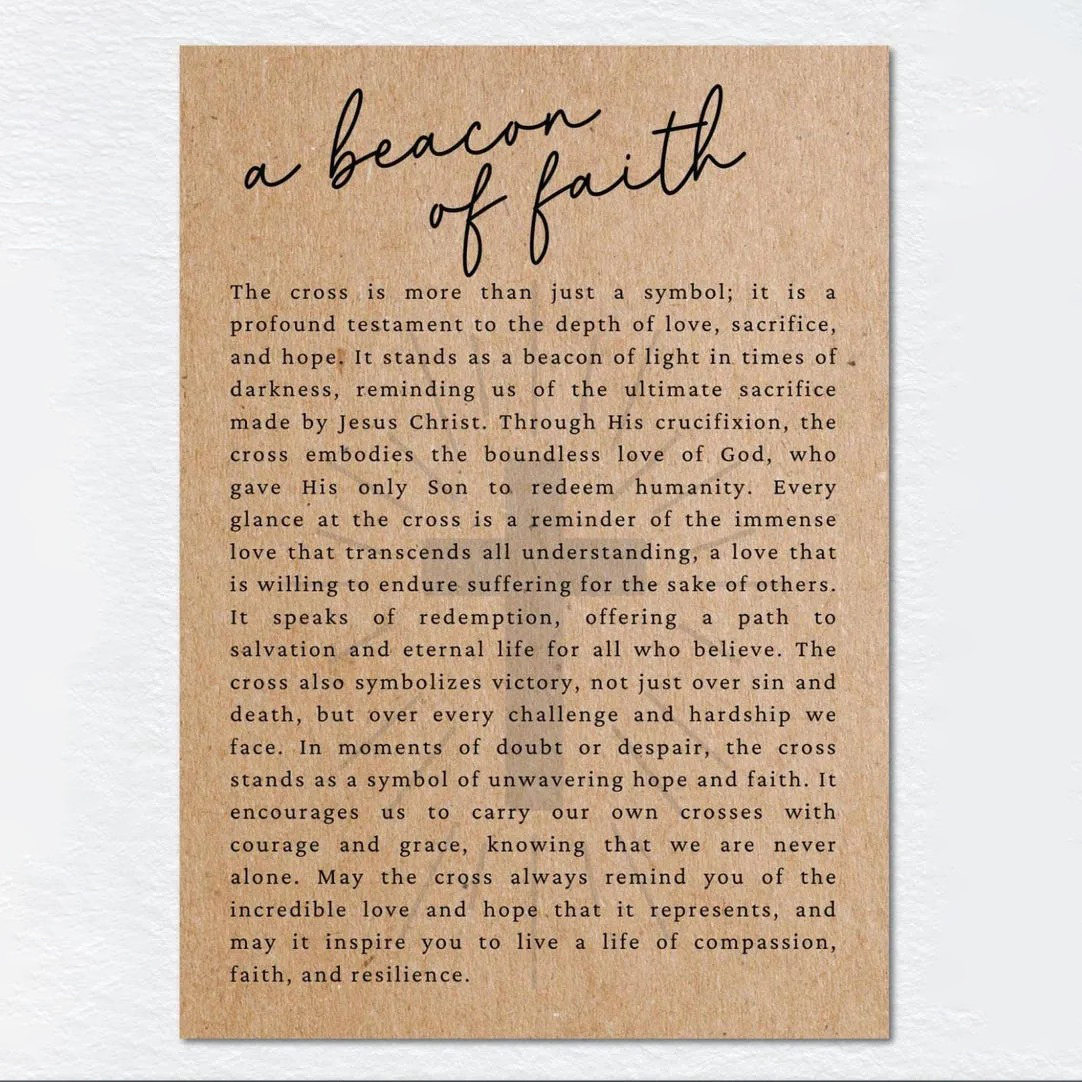 a beacon
of faith
The cross is more than just a symbol; it is a
profound testament to the depth of love, sacrifice,
and hope. It stands as a beacon of light in times of
darkness, reminding us of the ultimate sacrifice
made by Jesus Christ. Through His crucifixion, the
cross embodies the boundless love of God, who
gave His only Son to redeem humanity. Every
glance at the cross is a reminder of the immense
love that transcends all understanding, a love that
is willing to endure suffering for the sake of others.
It speaks of redemption, offering a path to
salvation and eternal life for all who believe. The
cross also symbolizes victory, not just over sin and
death, but over every challenge and hardship we
face. In moments of doubt or despair, the cross
stands as a symbol of unwavering hope and faith. It
encourages us to carry our own crosses with
courage and grace, knowing that we are never
alone. May the cross always remind you of the
incredible love and hope that it represents, and
may it inspire you to live a life of compassion,
faith, and resilience.